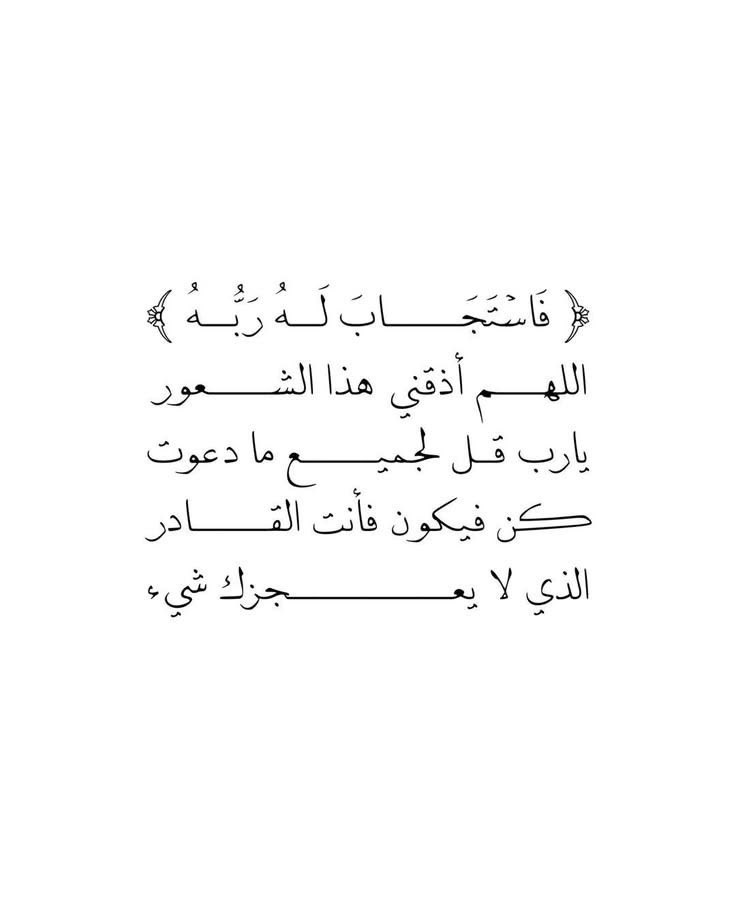 ﴿ فَاسْتَجَابَ لَهُ رَبُّهُ ﴾
اللهم أذقني هذا الشعور
يارب قل لجميع ما دعوت
كن فيكون فأنت القادر
الذي لا يعجزك شيء